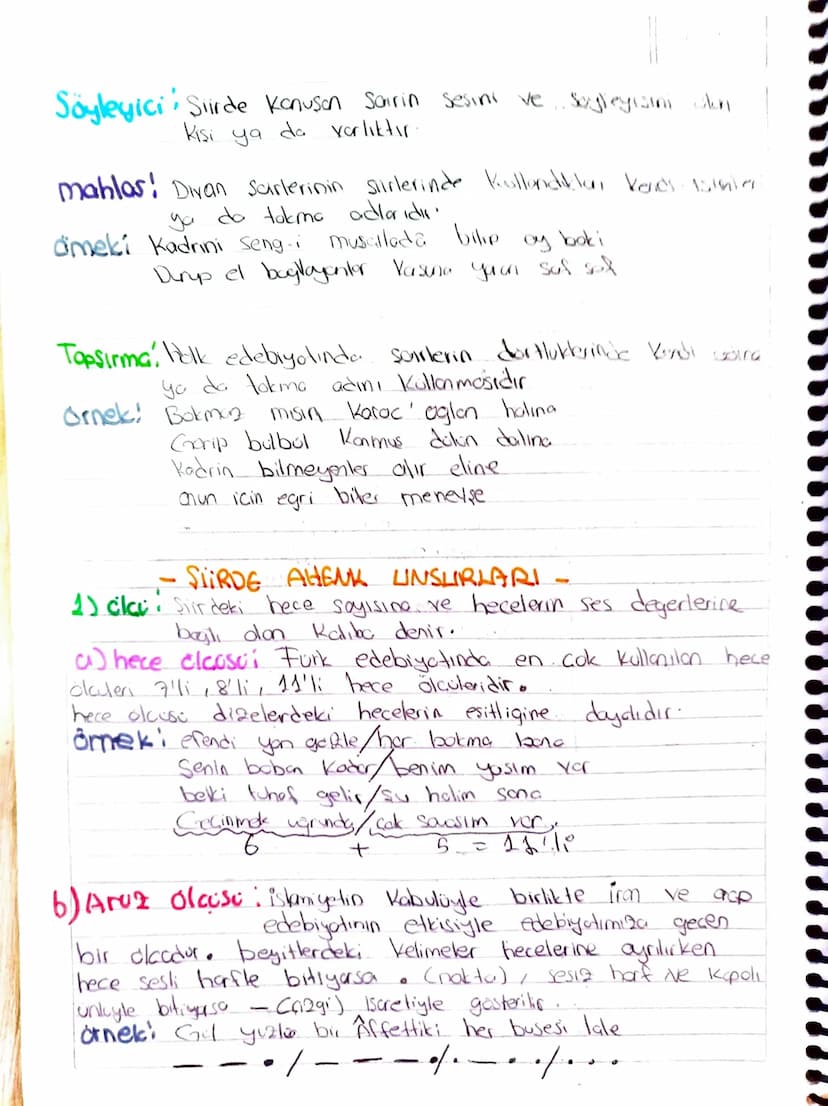 Söyleyici: Siirde Konusan sairin sesini ve söyleyisini alan
kisi ya da varlıktır.
mahlas: Divan sairlerinin siirlerinde kullandıkları kendi isimleri
ya da takma adlarıdır.
örnek: Kadrini seng-i musallada bilip ey baki
Durup el baglayanlar karsına yaran saf saf
Tapsırma: Halk edebiyatında sairlerin dörtlüklerinde kendi
ya da takma adını kullanmasıdır
örnek: Bakmaz mısın Karac'oglan halına
Garip bülbül konmus dalına
Kadrin bilmeyenler alır eline
onun icin egri biter menevse
- SİİRDE AHENK UNSURLARI -
1) ölcü: Siirdeki hece sayısına ve hecelerin ses degerlerine
baglı olan kalıba denir.
a) hece ölcüsü: Türk edebiyatında en cok kullanılan hece
ölcüleri 7'li, 8'li, 11'li hece ölcüleridir.
hece ölcüsü dizelerdeki hecelerin esitligine dayalıdır.
örnek: efendi yan gelile/hor bakma bana
Senin baban kadar/benim yasım var
belki tuhaf gelir/su halim sana
Gecinmek ugrunda/cok savasım var.
6 + 5 = 11'li
b) Aruz ölcüsü: islamiyetin kabulüyle birlikte iran ve arap
edebiyatının etkisiyle edebiyatımıza gecen
bir ölcüdür. beyitlerdeki kelimeler hecelerine ayrılırken
hece sesli harfle bitiyorsa . (nokta), sesiz harf ve kapalı
ünlüyle bitiyorsa - (cizgi) isaretiyle gösterilir.
örnek: Gül yüzlü bir Âfettiki her busesi lale
— — . / — — — — /. — . . /. . .